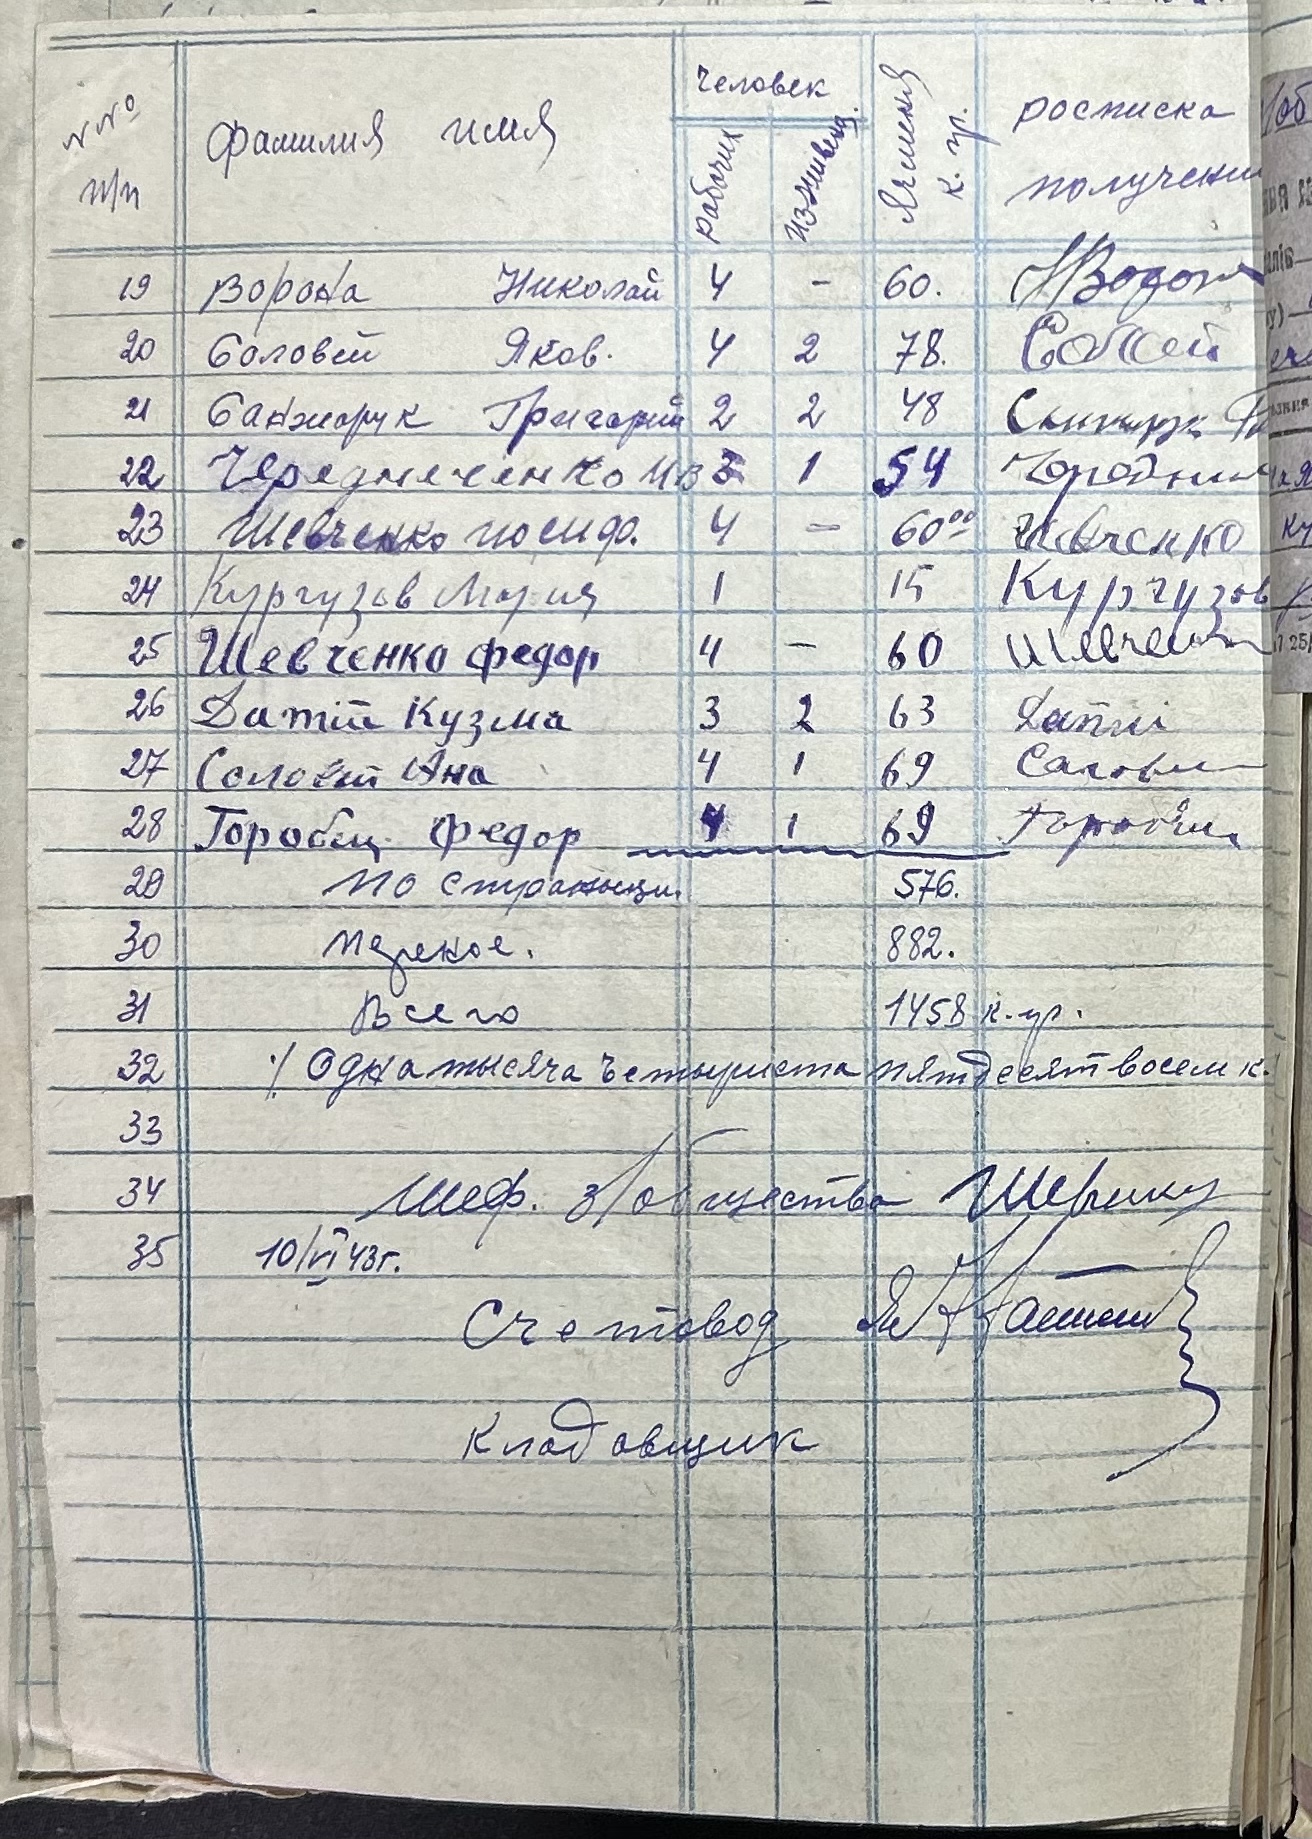 №№ п/п фамилия имя человек рабочих иждивенц. Ячменя к. гр. росписка получении
19 Ворона Николай 4 - 60. НВорона
20 Соловей Яков. 4 2 78. Соловей
21 Санжарук Григорий 2 2 48 Санжарук
22 Чередниченко Ив 3 1 54
23 Шевченко иосиф. 4 - 60⁰⁰ Шевченко
24 Кургузов Мария 1 15 Кургузов
25 Шевченко федор 4 - 60 Шевченко
26 Датій Кузма 3 2 63 Датій
27 Соловей Ана 4 1 69
28 Горобец Федор 4 1 69
29 по страницы 576.
30 882.
31 Всего 1458 к. гр.
32 ·/. Одна тысяча четыриста пятдесят восем к.
33
34 Шеф. з/общества
35 10/VI 43 г.
Счетовод
Кладовщик